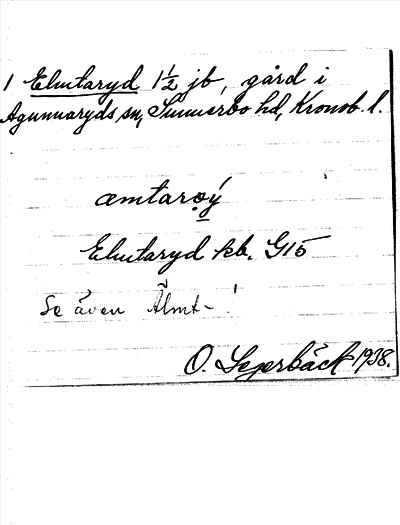 1 Elmtaryd 1½ jb, gård i
Agunnaryds sn, Sunnerbo hd, Kronob. l.
æmtarọ̲ý
Elmtaryd kb. G15
Se även Älmt- !
O. Segerbäck 1938.